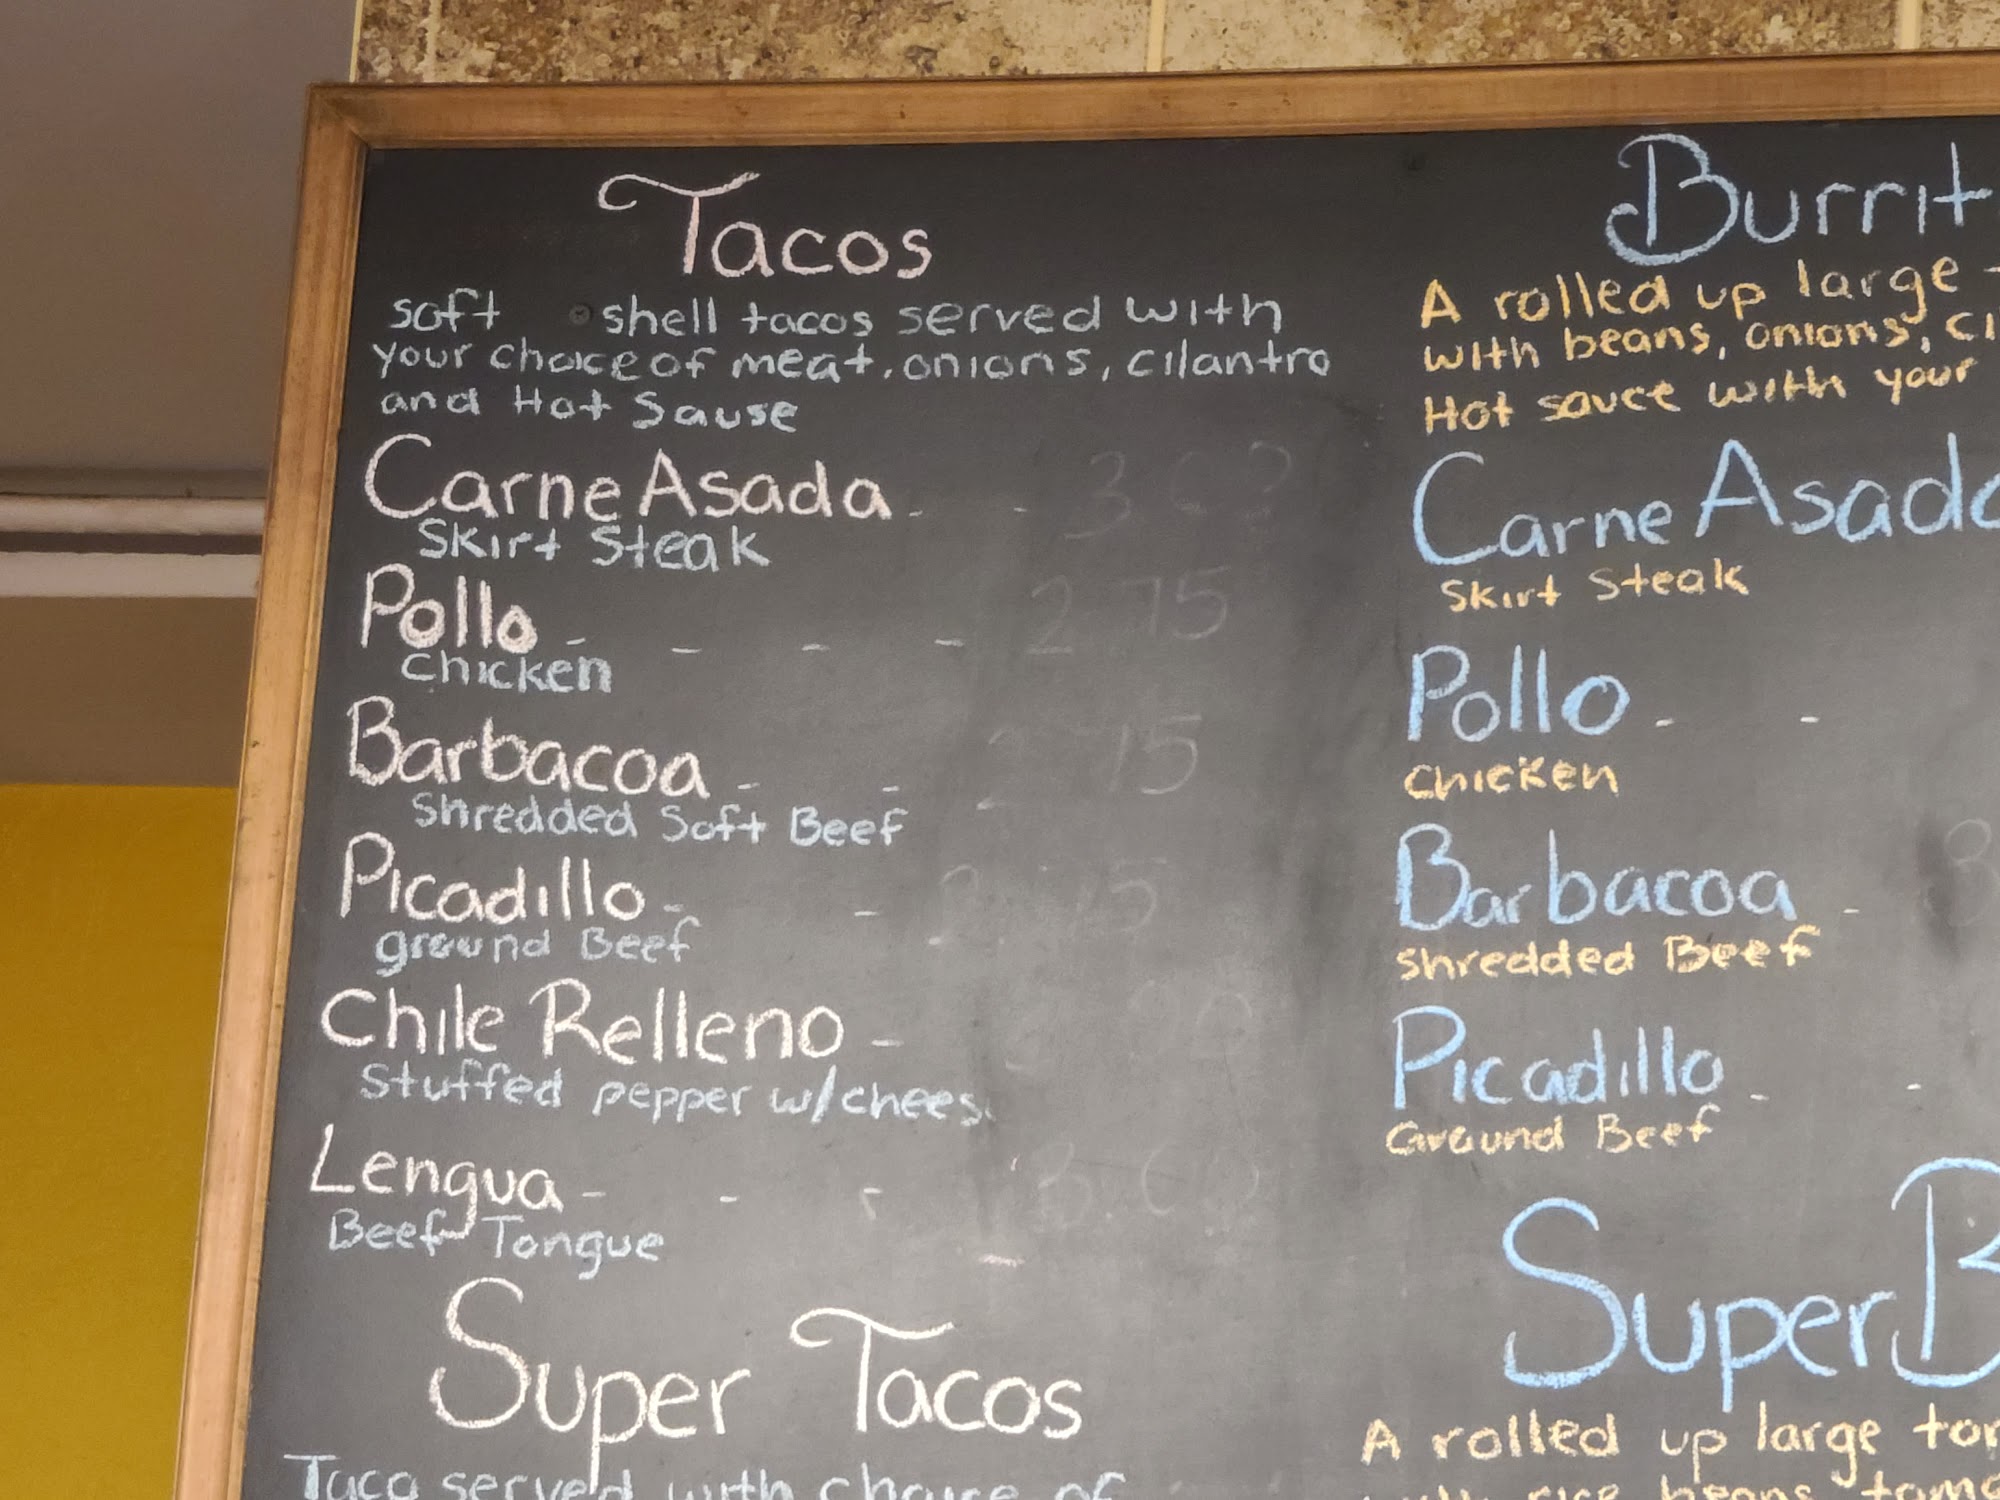 Tacos
soft shell tacos served with
your choice of meat, onions, cilantro
and Hot Sause
Carne Asada - -
Skirt Steak
Pollo - - - - 2.75
Chicken
Barbacoa - - 2.75
Shredded Soft Beef
Picadillo - - 2.75
ground Beef
Chile Relleno -
Stuffed pepper w/chees
Lengua - - - 3.00
Beef Tongue
Super Tacos
Taco served with choice of
Burrit
A rolled up large
with beans, onions, ci
Hot sauce with your
Carne Asada
Skirt Steak
Pollo - -
Chicken
Barbacoa -
Shredded Beef
Picadillo - -
Ground Beef
Super B
A rolled up large tor
rice beans, toma